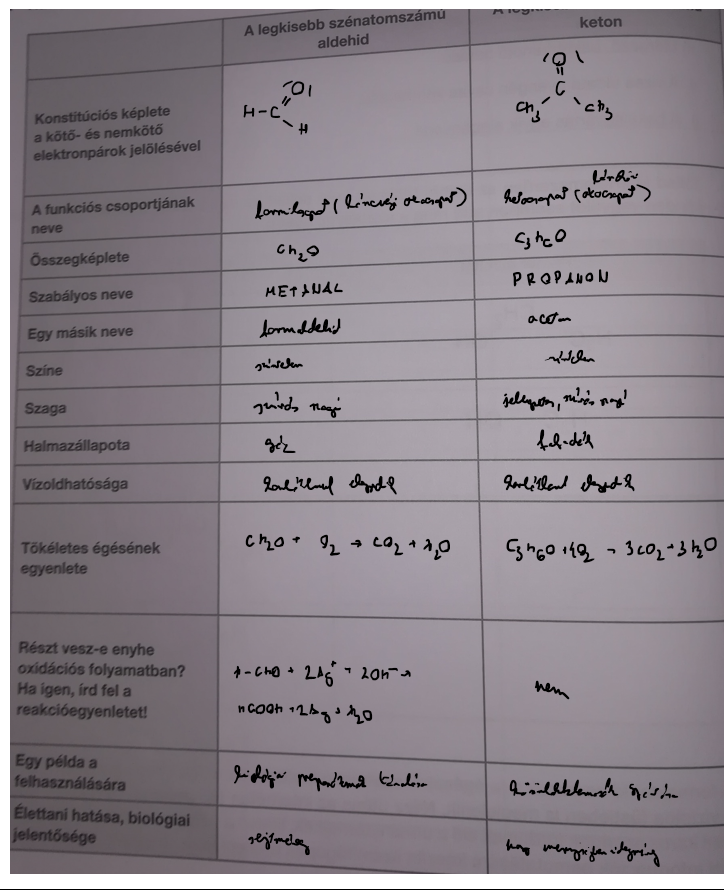 A legkisebb szénatomszámú
aldehid
keton
Konstitúciós képlete
a kötő- és nemkötő
elektronpárok jelölésével
H-C
O
H
O
C
CH3
CH3
A funkciós csoportjának
neve
formilcsoport (láncvégi oxocsoport)
ketocsoport (oxocsoport)
Összegképlete
CH2O
C3H6O
Szabályos neve
METANAL
PROPANON
Egy másik neve
formaldehid
aceton
Színe
színtelen
színtelen
Szaga
szúrós szagú
jellegzetes, szúrós szagú
Halmazállapota
gáz
folyadék
Vízoldhatósága
korlátlanul elegyedik
korlátlanul elegyedik
Tökéletes égésének
egyenlete
CH2O + O2 → CO2 + H2O
C3H6O + 4O2 → 3CO2 + 3H2O
Részt vesz-e enyhe
oxidációs folyamatban?
Ha igen, írd fel a
reakcióegyenletet!
H-CHO + 2Ag+ + 2OH- →
HCOOH + 2Ag + H2O
nem
Egy példa a
felhasználására
Élettani hatása, biológiai
jelentősége
sejtméreg
nagy mennyiségben idegméreg